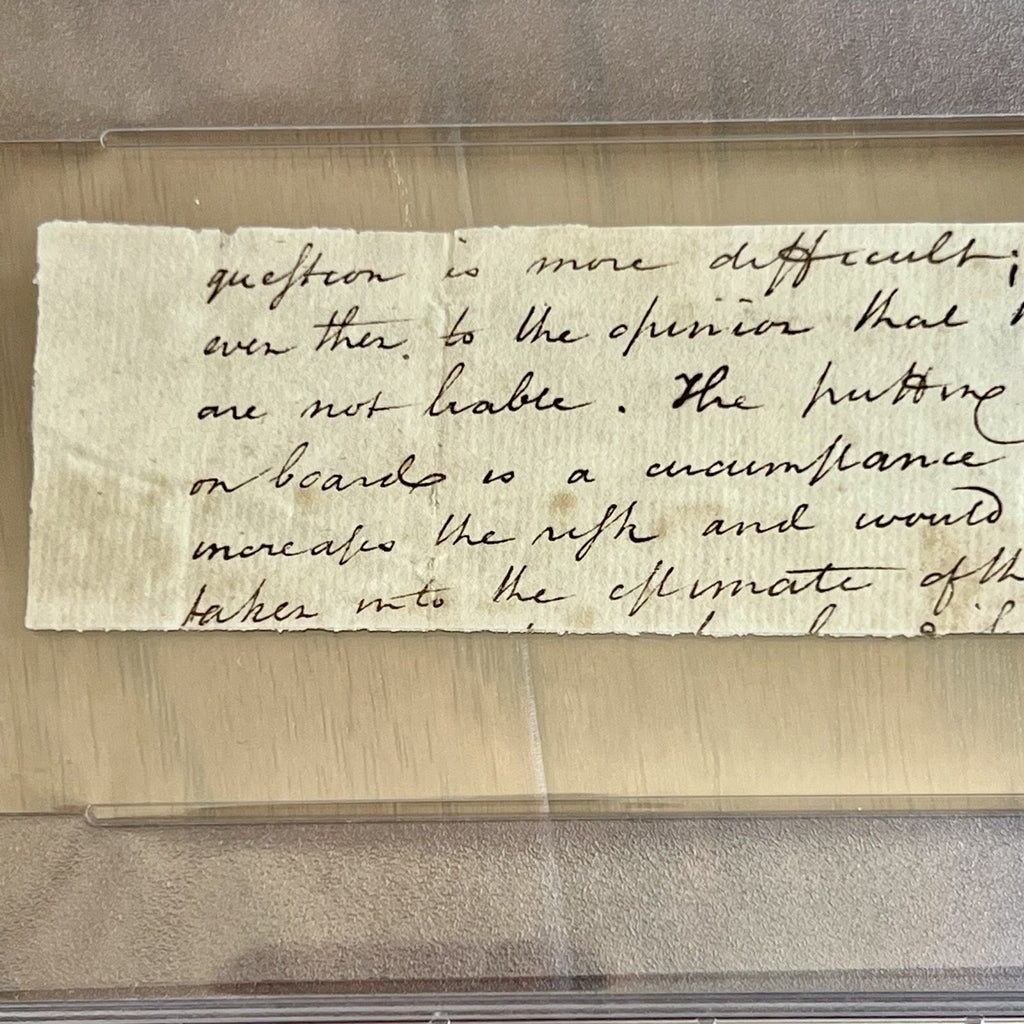 queſtion is more difficult;
even then to the opinion that
are not liable. The putting
on board is a circumſtance
increaſes the riſk and would
taken into the eſtimate of th